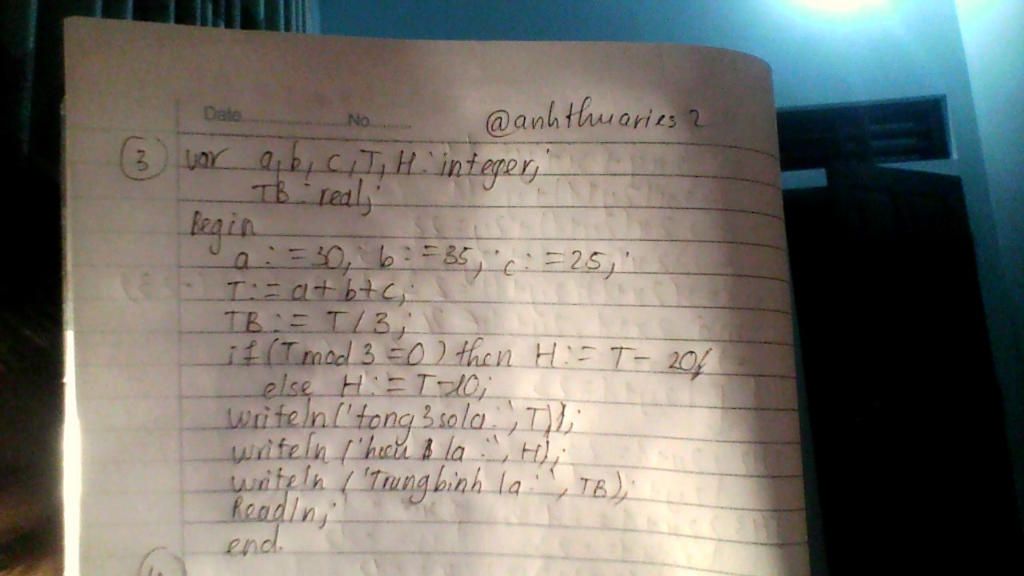 Date............... No.......... @anhthuaries2
③ var a,b, c,T, H : integer;
TB : real;
Begin
a : = 30; b : = 35; c : = 25;
T := a + b + c;
TB := T / 3;
if (T mod 3 = 0) then H := T - 20
else H := T-10;
writeln('tong 3 so la : ', T);
writeln ('hieu la : ', H);
writeln ('Trung binh la : ', TB);
Readln;
end.